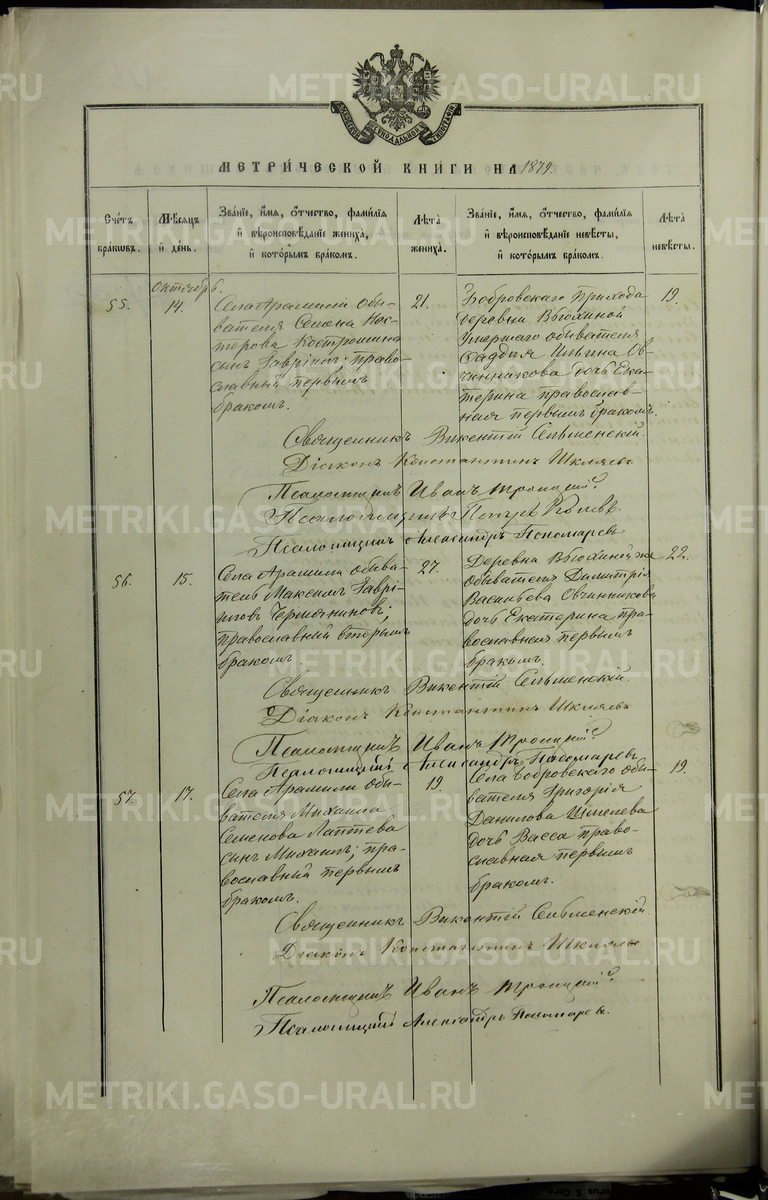 МЕТРИЧЕСКОЙ КНИГИ НА 1879
Счетъ браковъ.
Мѣсяцъ и день.
Званіе, имя, отчество, фамилія и вѣроисповѣданіе жениха, и которымъ бракомъ.
Лѣта жениха.
Званіе, имя, отчество, фамилія и вѣроисповѣданіе невѣсты, и которымъ бракомъ.
Лѣта невѣсты.
Октябрь.
55.
14.
Села Арамили обы-
вателя Семена Нес-
терова Костромина
сынъ Гавріилъ; право-
славный первымъ
бракомъ.
21.
Бобровскаго прихода
деревни Вьюхиной
умершаго обывателя
Фаддѣя Ильина Ов-
чинникова дочь Ека-
терина православ-
ная первымъ бракомъ.
19.
Священникъ Викентій Сельменскій.
Діаконъ Константинъ Шкляевъ
Псаломщикъ Иванъ Троицкій
Псаломщикъ Петръ
Псаломщикъ Александръ Пономаревъ
56.
15.
Села Арамили обыва-
тель Максимъ Гаврі-
иловъ
православный вторымъ
бракомъ.
27.
Деревни Вьюхиной же
обывателя Димитрія
Васильева Овчинникова
дочь Екатерина пра-
вославная первымъ
бракомъ.
22.
Священникъ Викентій Сельменскій.
Діаконъ Константинъ Шкляевъ
Псаломщикъ Иванъ Троицкій
Псаломщикъ Александръ Пономаревъ
57.
17.
Села Арамили обы-
вателя Михаила
Семенова Лаптева
сынъ Михаилъ; пра-
вославный первымъ
бракомъ.
19.
Села Бобровскаго обы-
вателя Григорія
Данилова
дочь Васса право-
славная первымъ
бракомъ.
19.
Священникъ Викентій Сельменскій.
Діаконъ Константинъ Шкляевъ
Псаломщикъ Иванъ Троицкій
Псаломщикъ Александръ Пономаревъ.
METRIKI.GASO-URAL.RU